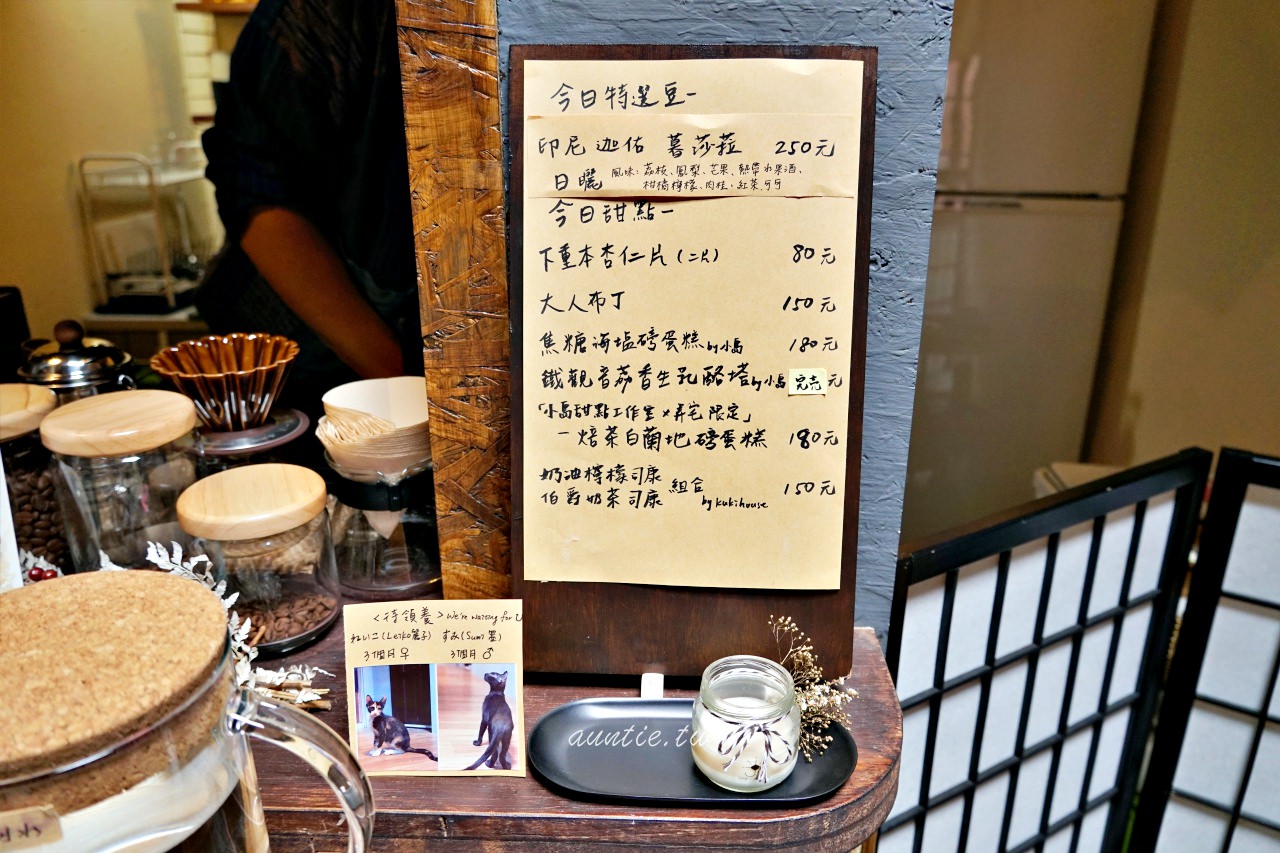 今日特選豆-
印尼 迦佑 暮莎菈 250元
日曬 風味:荔枝、鳳梨、芒果、熱帶水果酒、
柑橘檸檬、肉桂、紅茶、可可
今日甜點-
下重本杏仁片(二片) 80元
大人布丁 150元
焦糖海塩磅蛋糕by小島 180元
鐵觀音荔香生乳酪塔by小島 完売元
「小島甜點工作室×弄宅 限定」
-焙茶白蘭地磅蛋糕 180元
奶油檸檬司康
伯爵奶茶司康 組合 150元
by kukihouse
<待領養> We're waiting for U
れいこ(Leiko麗子) すみ(Sumi 墨)
3個月♀ 3個月♂
auntie.tu